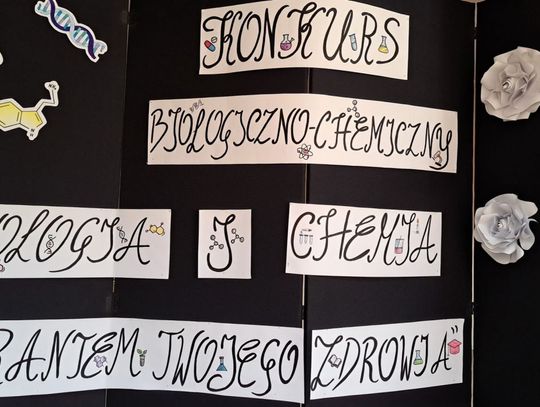 KONKURS
BIOLOGICZNO-CHEMICZNY
OLOGIA I CHEMIA
RANIEM TWOJEGO ZDROWIA"